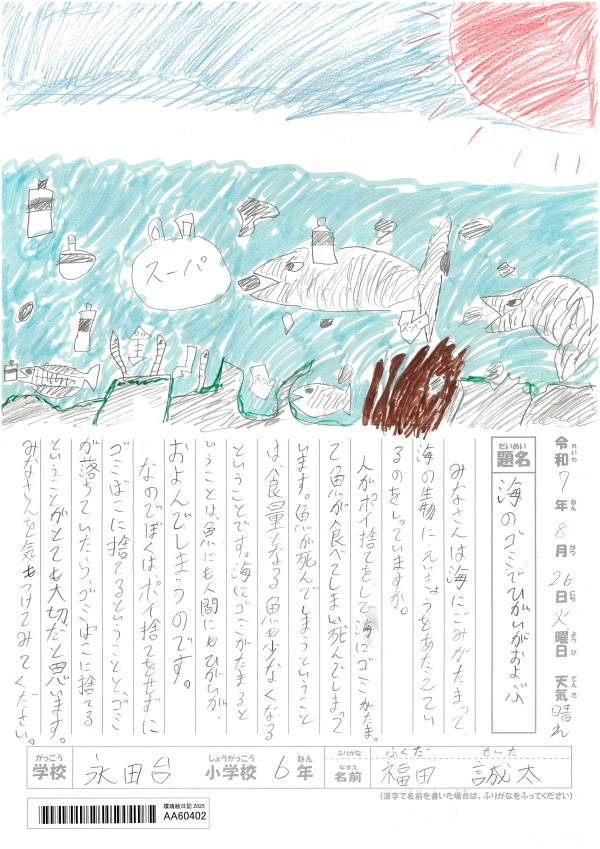 スーパ
令和7年8月26日火曜日 天気晴れ
れいわ ねん がつ にち ようび てんき
だいめい
題名
海のゴミでひがいがおよぶ
みなさんは海にごみがたまって、
海の生物にえいきょうをあたえてい
るのをしっていますか。
人がポイ捨てをして海にゴミがたま
って魚が食べてしまい死んでしまって
います。魚が死んでしまうということ
は食量となる魚も少なくなる
ということです。海にゴミがたまると
いうことは、魚にも人間にもひがいが
およんでしまうのです。
なのでぼくは、ポイ捨てをせずに
ゴミばこに捨てるということと、ゴミ
が落ちていたら、ゴミばこに捨てる
ということがとても大切だと思います。
みなさんを気をつけてみてください。
がっこう
学校
永田台
しょうがっこう
小学校
6
ねん
年
ふりがな
ふくだ せいた
なまえ
名前
福田 誠太
(漢字で名前を書いた場合は、ふりがなをふってください)
環境絵日記 2025
AA60402